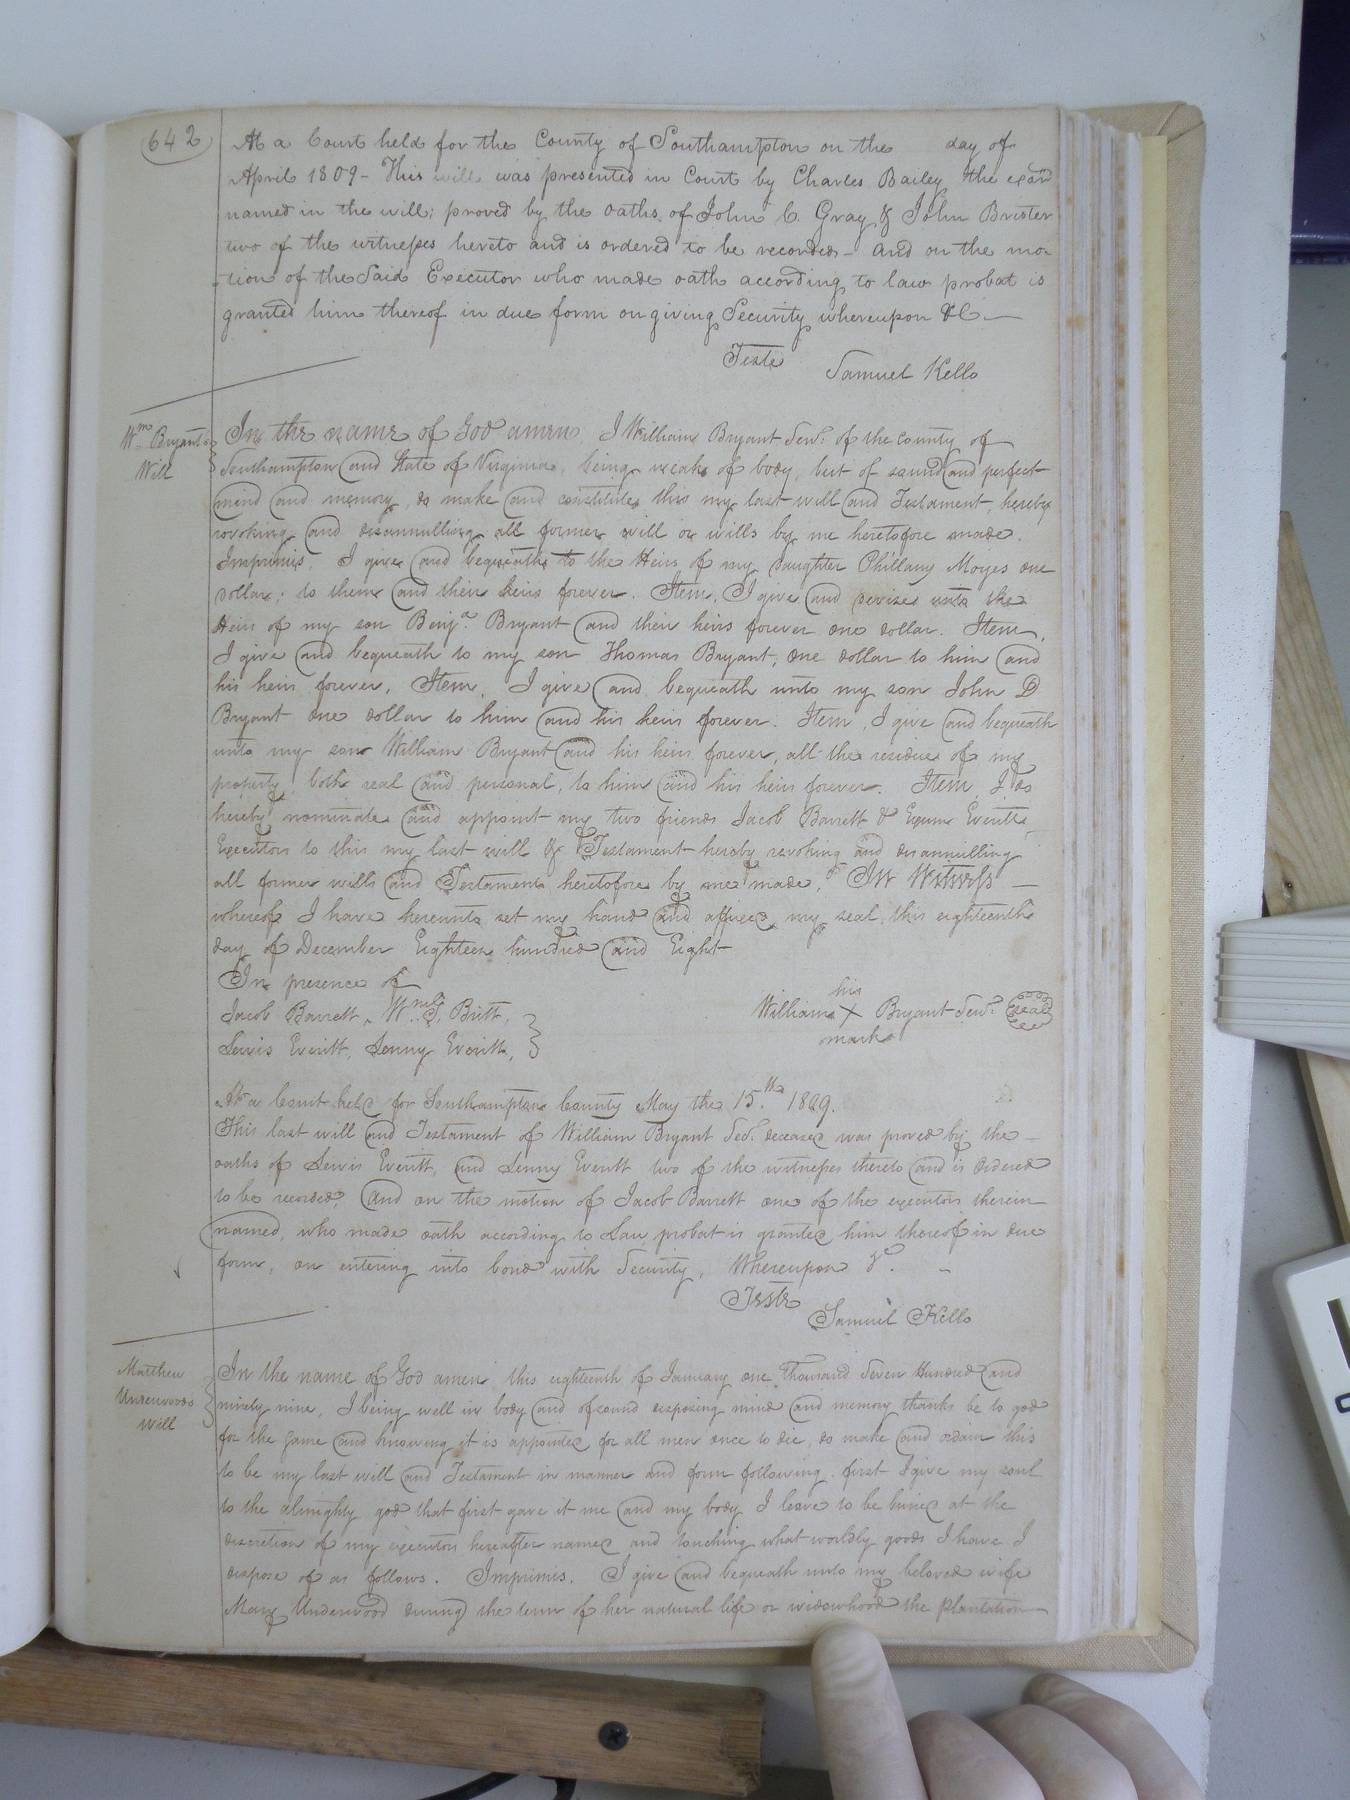 642
At a Court held for the County of Southampton on the day of
April 1809 - This will was presented in Court by Charles Bailey the exor
named in the will; proved by the oaths of John C. Gray & John Brister
two of the witnesses hereto and is ordered to be recorded - And on the mo-
tion of the Said Executor who made oath according to law probat is
granted him thereof in due form on giving Security whereupon &C -
Teste Samuel Kello
Wm Bryants
Will
In the name of God amen, I William Bryant Senr. of the county of
Southampton and State of Virginia, being weak of body, but of sound and perfect
mind and memory, do make and constitute this my last will and Testament, hereby
revoking and disannulling all former will or wills by me heretofore made.
Imprimis. I give and bequeath to the Heirs of my daughter Phillany Moyes one
dollar; to them and their heirs forever. Item, I give and devise unto the
Heirs of my son Benja. Bryant and their heirs forever one dollar. Item,
I give and bequeath to my son Thomas Bryant, one dollar to him and
his heirs forever. Item, I give and bequeath unto my son John D
Bryant one dollar to him and his heirs forever. Item, I give and bequeath
unto my son William Bryant and his heirs forever, all the residue of my
property both real and personal, to him and his heirs forever. Item, I do
hereby nominate and appoint my two friends Jacob Barrett & Everitt
Executors to this my last will & Testament hereby revoking and disannulling
all former wills and Testaments heretofore by me made. In Witness -
whereof I have hereunto set my hand and affixed my seal this eighteenth
day of December Eighteen hundred and Eight
In presence of
Jacob Barrett, Wm. Britt,
Lewis Everitt, Senny Everitt,
his
William X Bryant Senr. Seal
mark
At a Court held for Southampton County May the 15th 1809.
This last will and Testament of William Bryant Senr. deceased was proved by the -
oaths of Lewis Everitt, and Senny Everitt two of the witnesses thereto and is Ordered
to be recorded, And on the motion of Jacob Barrett one of the executors therein
named, who made oath according to Law, probat is granted him thereof in due
form, on entering into bond with Security, Whereupon &c. -
Teste
Samuel Kello
Matthew
Underwoods
Will
In the name of God amen this eighteenth of January one Thousand Seven Hundred and
ninety nine, I being well in body and of sound disposing mind and memory thanks be to god
for the same and knowing it is appointed for all men once to die, do make and ordain this
to be my last will and Testament in manner and form following. first I give my soul
to the almighty god that first gave it me and my body I leave to be buried at the
discretion of my executors hereafter named and touching what worldly goods I have I
dispose of as follows. Imprimis. I give and bequeath unto my beloved wife
Mary Underwood during the term of her natural life or widowhood the plantation